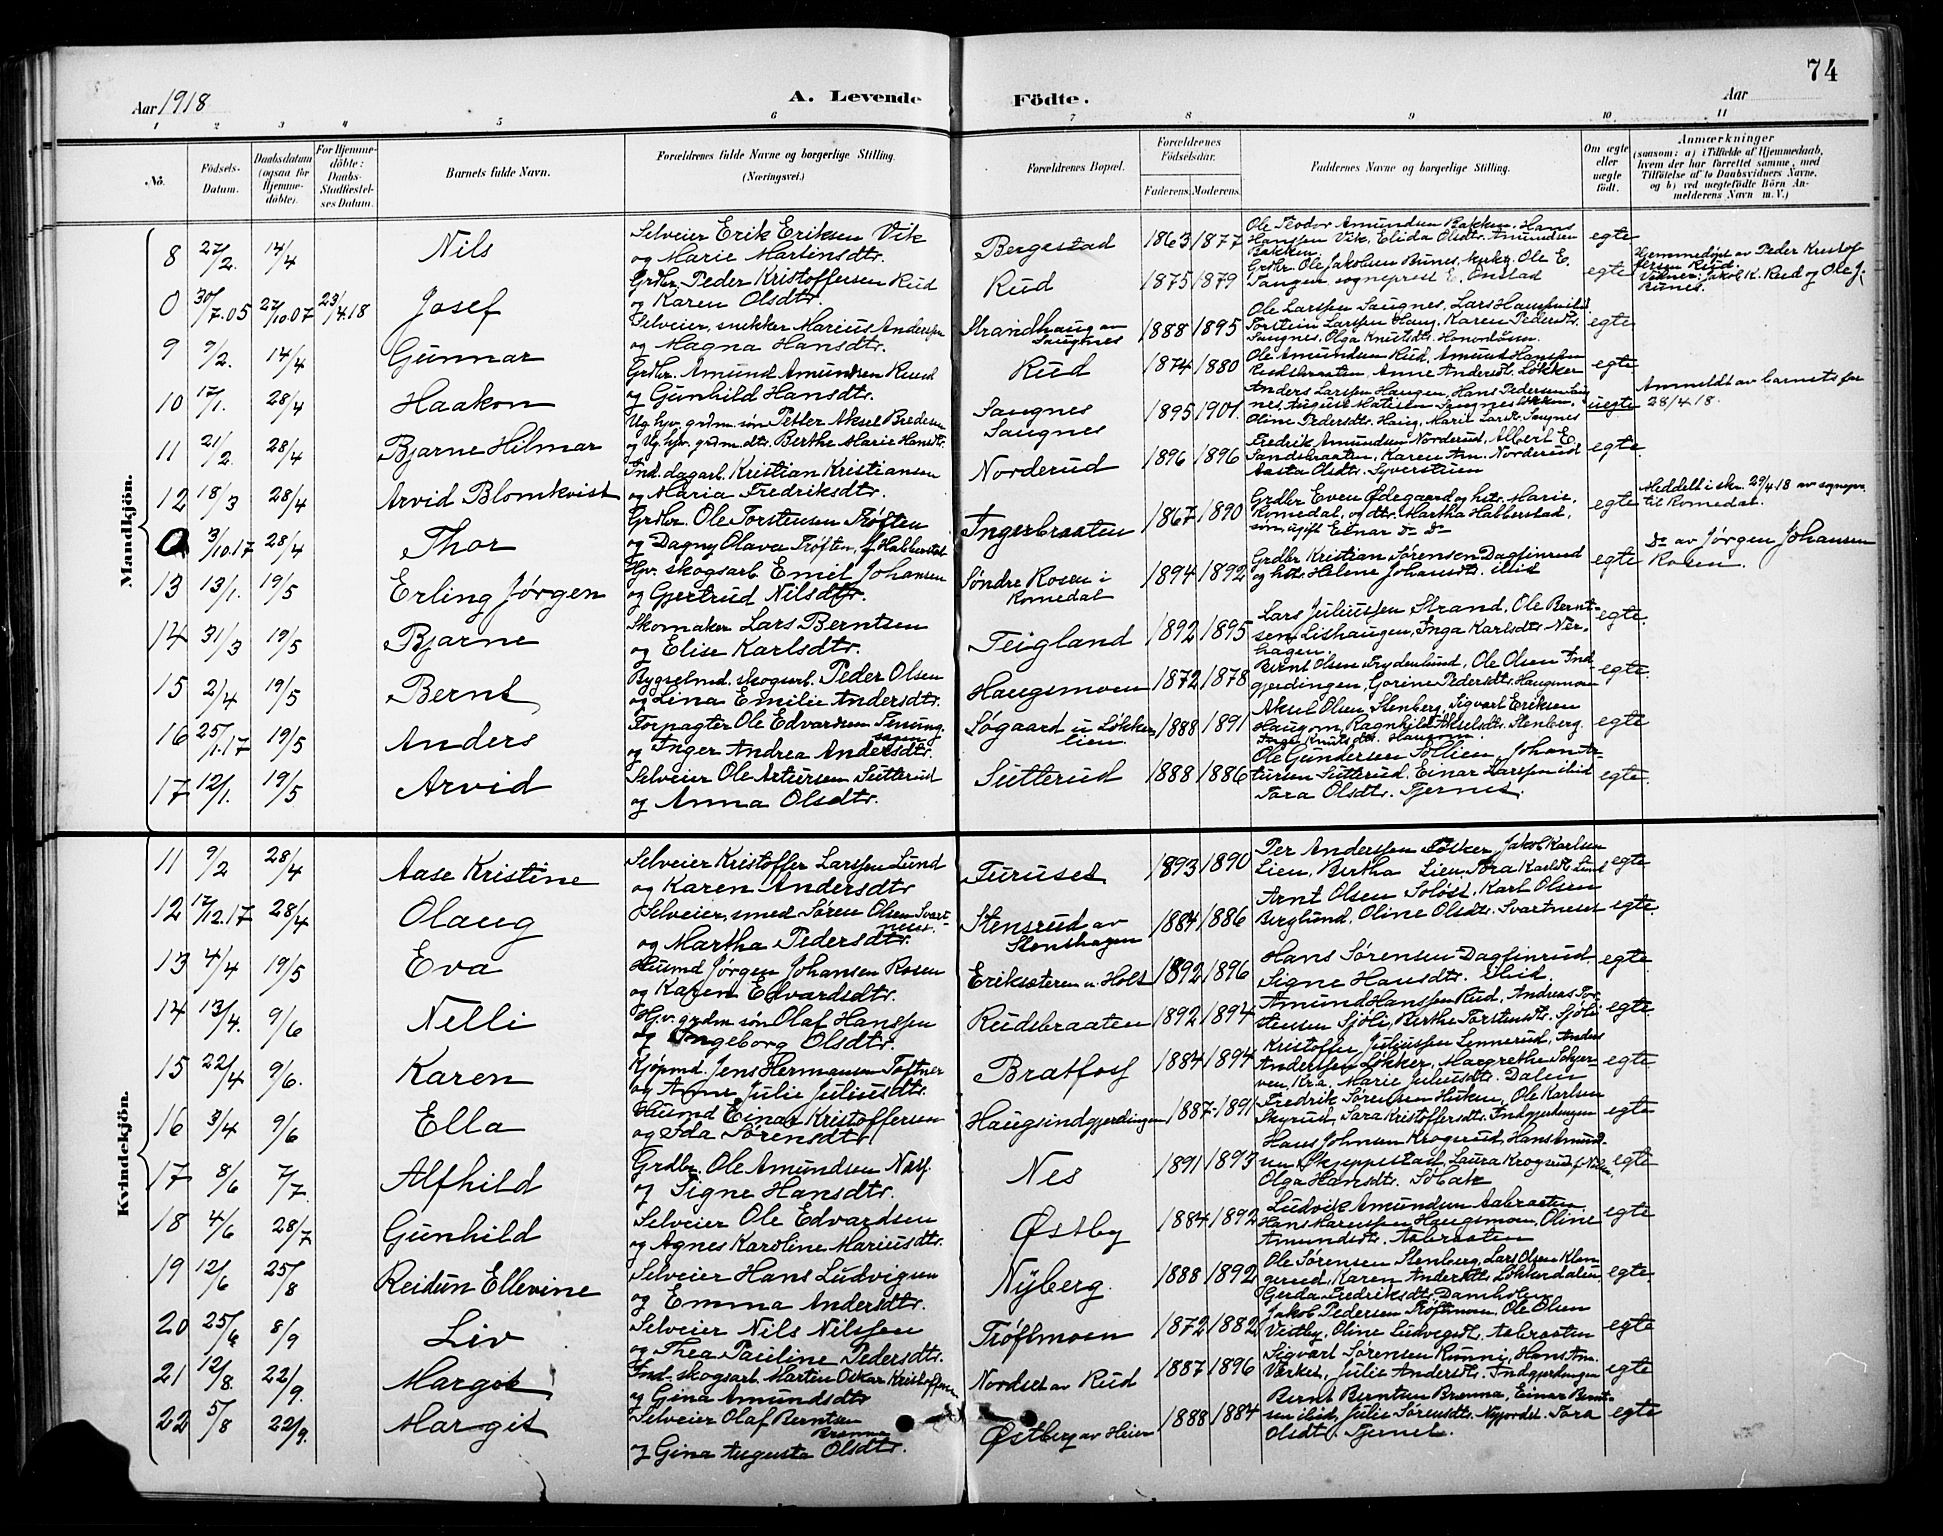 74
Aar 1918
A. Levende Födte.
Aar
1 2 3 4 5 6 7 8 9 10 11
No.
Födsels-Datum.
Daabsdatum (ogsaa for Hjemme-döbte).
For Hjemme-döbte: Daabs-Stadfæstel-ses Datum.
Barnets fulde Navn.
Forældrenes fulde Navne og borgerlige Stilling. (Næringsvei.)
Forældrenes Bopæl.
Forældrenes Födselsaar.
Faderens. Moderens.
Faddernes Navne og borgerlige Stilling.
Om ægte eller uægte födt.
Anmærkninger
(saasom: a) i Tilfælde af Hjemmedaab,
hvem der har forrettet samme, med
Tilföielse af to Daabsvidners Navne,
og b) ved uægtefödte Börn An-
melderens Navn m. V.)
Mandkjön.
8 27/2. 14/4 Nils
Selveier Erik Eriksen Vik
og Marie Martinsdtr.
Bergestad 1863 1877
Ole Teodor Amundsen Bakken, Hans
Hanssen Vik, Elida Olsdtr. Amundsen
Bakken
egte
0 30/7.05 27/10.07 23/4.18 Josef
Grdbr. Peder Kristoffersen Rud
og Karen Olsdtr.
Rud 1875 1879
Grdbr. Ole Jakobsen Bunes, Ole E.
Tangen, sogneprest E. Onstad
egte
Hjemmedøpt av Peder Kristof
fersen Rud.
Vidner: Jakob K. Rud og Ole J.
Bunes.
9 9/2. 14/4 Gunnar
Selveier, snekker Marius Anderssen
og Magna Hansdtr.
Strandhaug av
Saugnes
1888 1895
Ole Larssen Saugnes, Lars
Torstein Larssen Haug, Karen Pedersdtr.
Saugnes, Olga Knutsdtr.
egte
10 17/1. 28/4 Haakon
Grdbr. Amund Amundsen Ruud
og Gunhild Hansdtr.
Rud 1874 1880
Ole Amundsen Rud, Amund Hanssen
Rudsbraaten, Anne Andersdt. Løkker
egte
11 21/2. 28/4 Bjarne Hilmar
Ug. hjv. grdm. søn Petter Aksel Bredesen
og Ug. hjv. grdm. dtr. Berthe Marie Hansdtr.
Saugnes
Saugnes
1895 1901.
Anders Larssen Haugen, Hans Pedersen Saug
nes, August Matisen Saugnes
Oline Pedersdtr. Haug, Marie Larsdt. Saugnes
uegte
Anmeldt av barnets far
28/4 18.
12 18/3 28/4 Arvid Blomkvist
Ind. dagarb. Kristian Kristiansen
og Maria Fredriksdtr.
Norderud 1896 1896
Fredrik Amundsen Norderud, Albert E.
Sandsbraaten, Karen An. Norderud
Aasta Olsdtr. Syverstuen
egte
0 3/10.17 28/4 Thor
Grdbr. Ole Torstensen Trøften
og Dagny Olava Trøften, f. Habberstad
Ingerbraaten 1867 1890
Grdbr Even Ødegaard og hstr. Marie,
Romedal, og dtr. Martha Habberstad,
søn, ugift Einar do do
egte
Meddelt i skr. 29/4.18 av sognepr.
til Romedal.
13 13/1. 19/5 Erling Jørgen
Hjv. skogsarb. Emil Johansen
og Gjertrud Nilsdtr.
Søndre Rosen i
Romedal
1894 1892
Grdbr Kristian Sørensen Dagfinrud
og hstr. Helene Johansdtr. ibid
egte
do av Jørgen Johansen
Rosen.
14 31/3 19/5 Bjarne
Skomaker Lars Berntsen
og Elise Karlsdtr.
Teigland 1892 1895
Lars Juliussen Strand, Ole Bernt-
sen Lishaugen, Inga Karlsdtr. Ner-
hagen.
egte
15 2/4 19/5 Bernt
Bygselmd. skogsarb. Peder Olsen
og Lina Emilie Andersdtr.
Haugsmoen 1872 1878
Bernt Olsen Frydenlund, Ole Olsen Ind-
gjerdingen, Gorine Pedersdtr. Haugsmoen
egte
16 25/1.17 19/5 Anders
Forpagter Ole Edvardsen
og Inger Andrea Andersdtr.
Søgaard u Løkker
lien
1888 1891
Aksel Olsen Stenberg, Sigvart Eriksen
Haugom, Ragnhild Akselsdtr. Stenberg,
Inga Knutsdtr. Haugom
egte
17 12/1. 19/5 Arvid
Selveier Ole Artursen Sutterud
og Anna Olsdtr.
Sutterud 1888 1886
Ole Gundersen Sollien, Johan Ar-
tursen Sutterud, Einar Larssen ibid
Tora Olsdtr. Tjernes.
egte
Kvindekjön.
11 9/2 28/4 Aase Kristine
Selveier Kristoffer Larssen Lund
og Karen Andersdtr
Furuset 1893 1890
Per Anderssen Løkker, Jakob Karlsen
Lien, Bertha Lien, Tora Karlsdt. Lund
egte
12 17/12.17 28/4 Olaug
Selveier, smed Søren Olsen Svart-
neset
og Martha Pedersdtr.
Stensrud av
Stenshagen
1884 1886
Arnt Olsen Soløst, Karl Olsen
Berglund, Oline Olsdtr. Svartneset
egte
13 4/4 19/5 Eva
Husmd Jørgen Johansen Rosen
og Karen Edvardsdtr.
Eriksæteren u. Holt 1892 1896
Hans Sørensen Dagfinrud,
Signe Hansdtr. ibid
egte
14 13/4. 9/6 Nelli
Hjv. grdm. søn Olaf Hanssen
og Ingeborg Olsdtr.
Rudsbraaten 1892 1894
Amund Hanssen Rud, Andreas Tor-
stensen Sjøli, Berthe Torstensdtr. Sjøli
egte
15 22/4 9/6. Karen
Kjøpmd. Jens Hermansen Toftner
og Anne Julie Juliusdtr.
Bratfoss 1884 1894
Kristoffer Juliussen Linnerud, Anders
Anderssen Løkker, Margrethe Skjer-
ven, Kr.a, Marie Juliusdtr. Dalen
egte
16 3/4 9/6 Ella
Husmd Einar Kristoffersen
og Ida Sørensdtr.
Haugsindgjerdingen 1887 1891
Fredrik Sørensen Huken, Ole Karlsen
Skyrud, Sara Kristoffersdtr. Indgjerdingen
egte
17 8/6 7/7 Alfhild
Grdbr. Ole Amundsen Næss.
og Signe Hansdtr.
Nes 1891 1893
Hans Johnsen Krogsrud, Hans Amund-
sen Skjeppestad, Laura Krogsrud
Olga Hansdtr.
egte
18 4/6 28/7 Gunhild
Selveier Ole Edvardsen
og Agnes Karoline Mariusdtr.
Østby 1884 1892
Ludvik Amundsen Aabraaten
Hans Haugsmoen, Oline
Amundsdtr. Aabraaten
egte
19 12/6 25/8 Reidun Ellevine
Selveier Hans Ludvigsen
og Emma Andersdtr.
Nyberg. 1888 1892
Ole Sørensen Stenberg, Lars Olsen Klan-
gerud, Karen Andersdtr. Løkkerdalen
Gerda Fredriksdtr. Damholen
egte
20 25/6 8/9 Liv
Selveier Nils Nilssen
og Thea Pauline Pedersdtr.
Trøftmoen 1872 1882
Jakob Pedersen Trøftmoen, Ole Olsen
Vestby, Oline Ludvigsdt. Aabraaten
egte
21 12/8. 22/9. Margit
Ind. skogsarb. Martin Oskar Kristoffersen
og Gina Amundsdtr
Nordset av Rud 1887 1896
Sigvart Sørensen Runni, Hans An.
Verket, Julie Andersdt. Indgjerdingen
egte
22 5/8 22/9. Margit
Selveier Olaf Berntsen
Brenna
og Gina Augusta Olsdtr.
Østberg av Heier 1888 1884
Bernt Berntsen Brenna, Einar Bernt-
sen ibid, Julie Sørensdtr. Nyjordet, Tora
Olsdtr. Tjernet.
egte